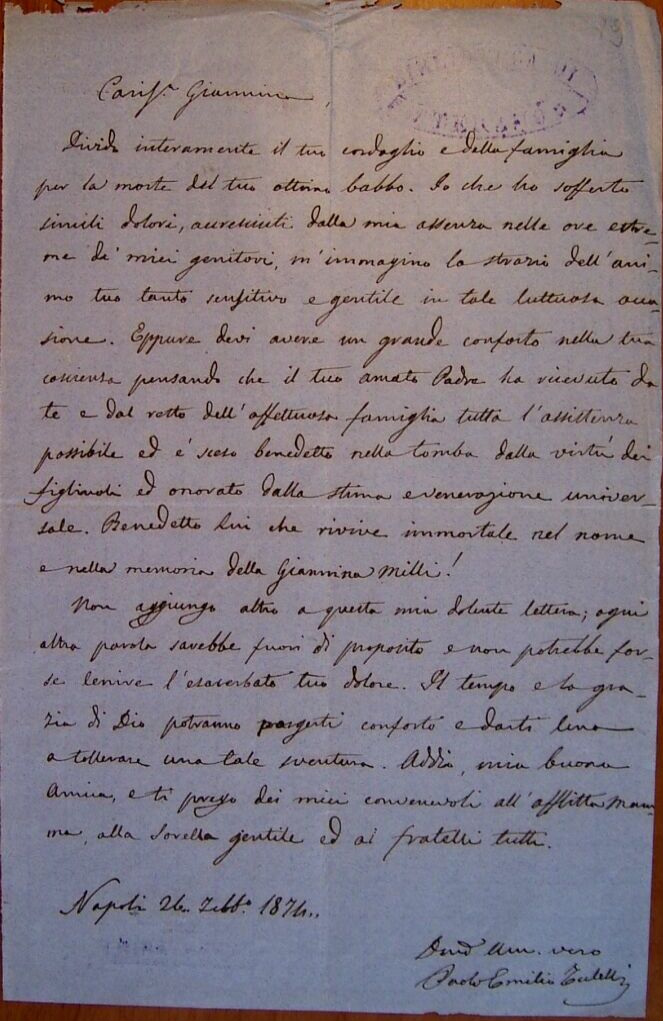 Cariss.ª Giannina,
BIBLIOTECA DI
TERAMO
Divido interamente il tuo cordoglio e della famiglia
per la morte del tuo ottimo babbo. Io che ho sofferto
simili dolori, accresciuti dalla mia assenza nelle ore estre-
me de' miei genitori, m'immagino lo strazio dell'ani-
mo tuo tanto sensitivo e gentile in tale luttuosa occa-
sione. Eppure devi avere un grande conforto nella tua
coscienza pensando che il tuo amato Padre ha ricevuto da
te e dal resto dell'affettuosa famiglia tutta l'assistenza
possibile ed é sceso benedetto nella tomba dalla virtú dei
figliuoli ed onorato dalla stima e venerazione univer-
sale. Benedetto Lui che rivive immortale nel nome
e nella memoria della Giannina Milli!
Non aggiungo altro a questa mia dolente lettera; ogni
altra parola sarebbe fuori di proposito e non potrebbe for-
se lenire l'esacerbato tuo dolore. Il tempo e la gra-
zia di Dio potranno porgerti conforto e darti lena
a tollerare una tale sventura. Addio, mia buona
Amica, e ti prego dei miei convenevoli all'afflitta Mam-
ma, alla sorella gentile ed ai fratelli tutti.
Napoli 26. 7bbº 1874.
Amº vero
Paolo Emilio Tulelli